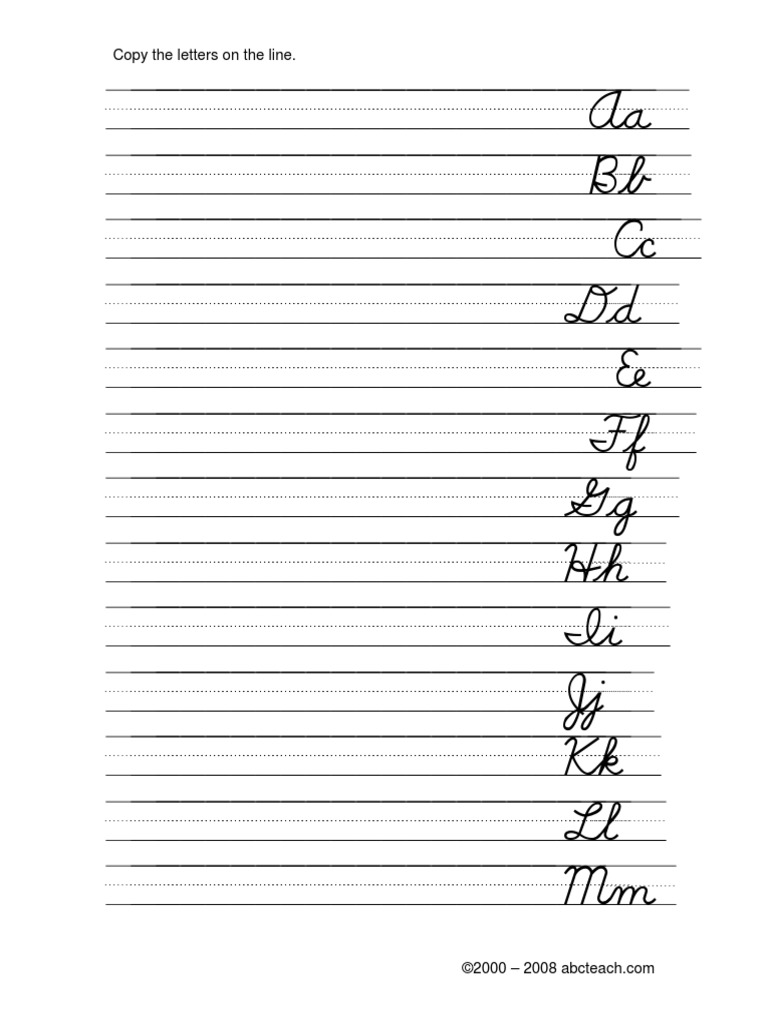 Copy the letters on the line.
Aa
Bb
Cc
Dd
Ee
Ff
Gg
Hh
Ii
Jj
Kk
Ll
Mm
©2000 – 2008 abcteach.com